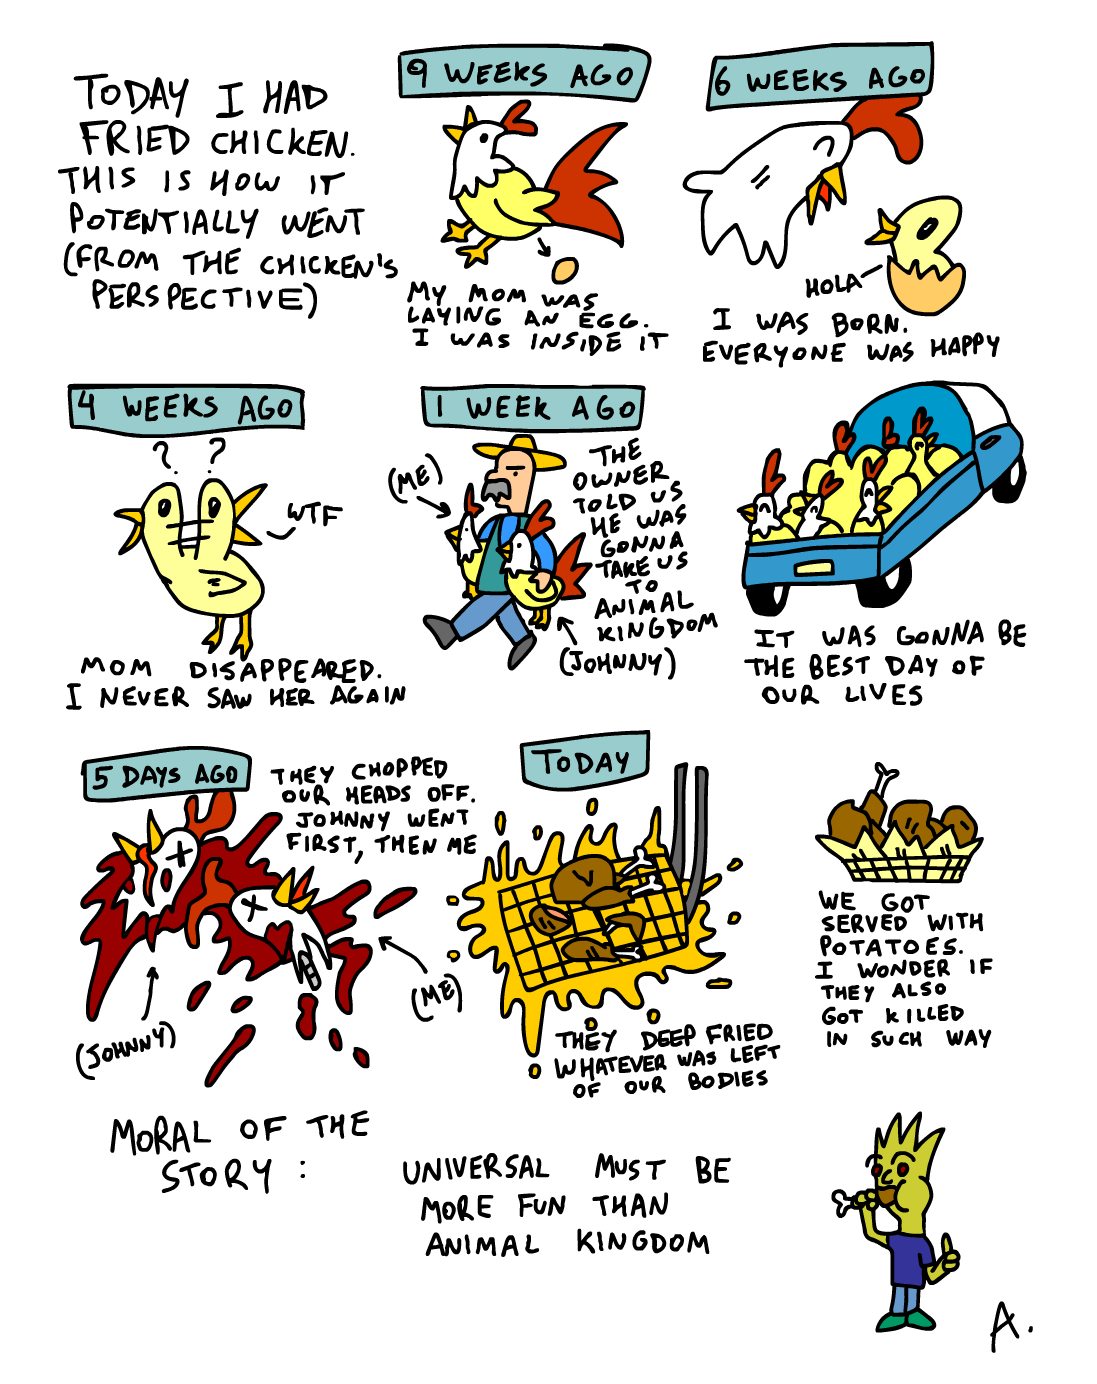 TODAY I HAD
FRIED CHICKEN.
THIS IS HOW IT
POTENTIALLY WENT
(FROM THE CHICKEN'S
PERSPECTIVE)
9 WEEKS AGO
MY MOM WAS
LAYING AN EGG.
I WAS INSIDE IT
6 WEEKS AGO
HOLA
I WAS BORN.
EVERYONE WAS HAPPY
4 WEEKS AGO
? ?
WTF
MOM DISAPPEARED.
I NEVER SAW HER AGAIN
1 WEEK AGO
(ME)
THE
OWNER
TOLD US
HE WAS
GONNA
TAKE US
TO
ANIMAL
KINGDOM
(JOHNNY)
IT WAS GONNA BE
THE BEST DAY OF
OUR LIVES
5 DAYS AGO
THEY CHOPPED
OUR HEADS OFF.
JOHNNY WENT
FIRST, THEN ME
(JOHNNY)
(ME)
TODAY
THEY DEEP FRIED
WHATEVER WAS LEFT
OF OUR BODIES
WE GOT
SERVED WITH
POTATOES.
I WONDER IF
THEY ALSO
GOT KILLED
IN SUCH WAY
MORAL OF THE
STORY:
UNIVERSAL MUST BE
MORE FUN THAN
ANIMAL KINGDOM
A.